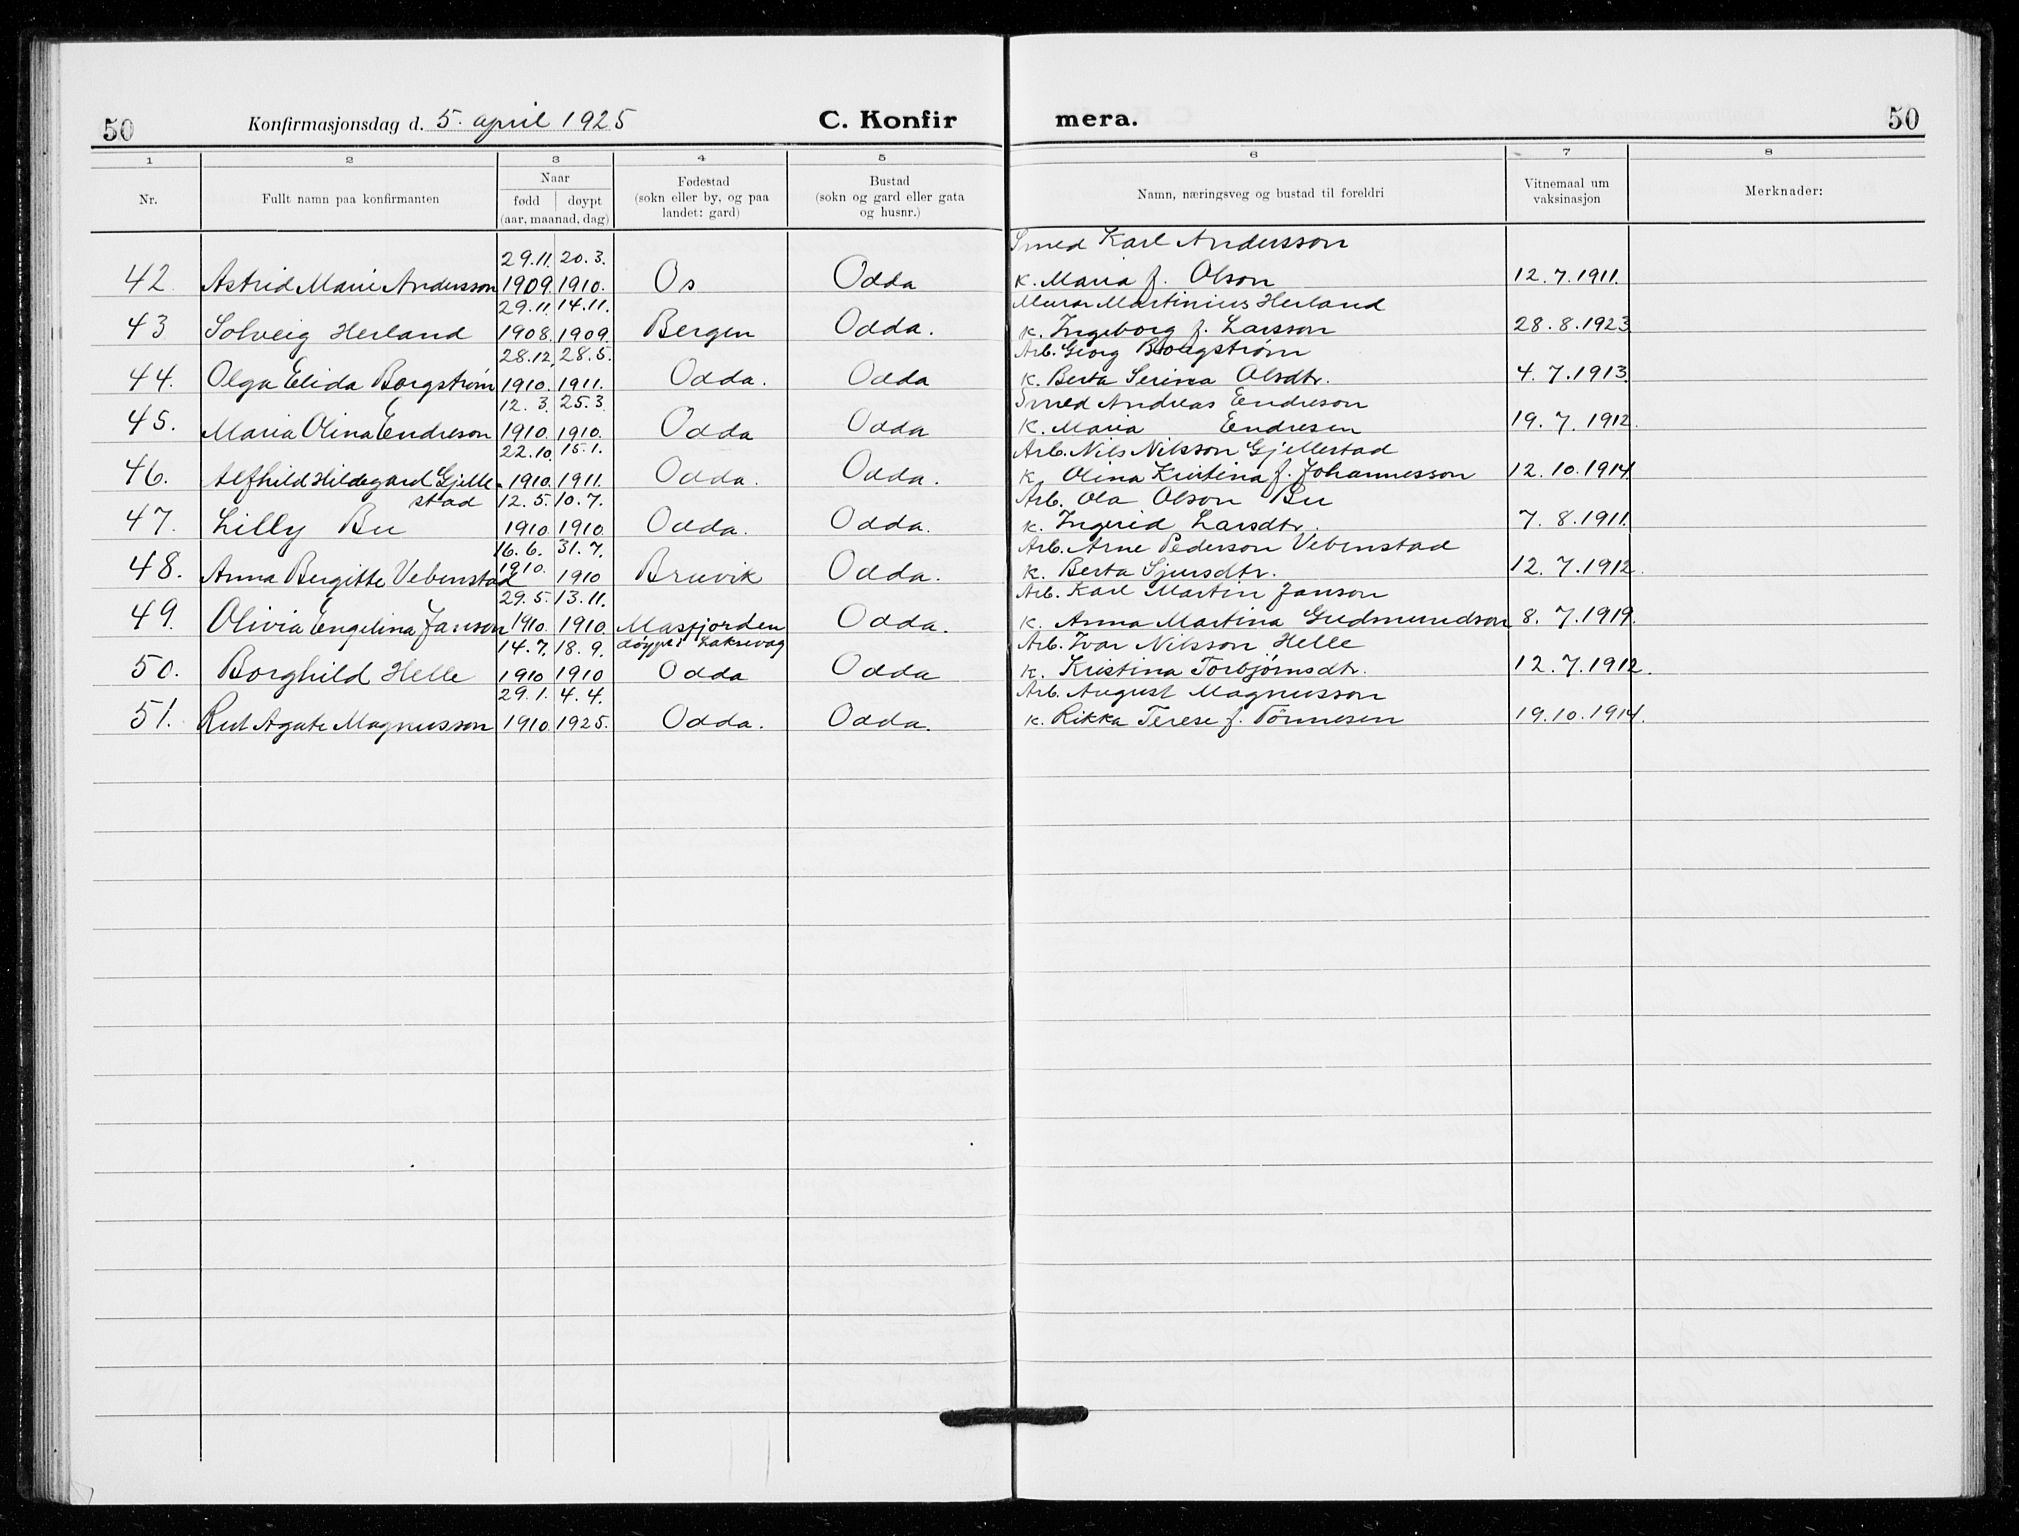 50 Konfirmasjonsdag d. 5. april 1925 C. Konfir mera. 50
1 2 3 4 5 6 7 8
Nr. Fullt namn paa konfirmanten Naar Fødestad Bustad Namn, næringsveg og bustad til foreldri Vitnemaal um Merknader:
fødd døypt (sokn eller by, og paa (sokn og gard eller gata vaksinasjon
(aar, maanad, dag) landet: gard) og husnr.)
29.11. 20.3. Smed Karl Andersson
42. Astrid Marie Andersson 1909. 1910. Os Odda K. Maria f. Olson 12.7.1911.
29.11. 14.11. Murar Martinius Herland
43 Solveig Herland 1908. 1909. Bergen Odda. K. Ingeborg f. Larsson 28.8.1923
28.12. 28.5. Arb. Georg Borgstrøm
44. Olga Elida Borgstrøm 1910. 1911. Odda. Odda K. Berta Serina Olsdtr. 4.7.1913.
12.3. 25.3. Smed Andreas Endreson
45. Maria Olina Endreson 1910. 1910. Odda Odda K. Maria Endresen 19.7.1912.
22.10. 15.1. Arb. Nils Nilsson Gjellestad
46. Alfhild Hildegard Gjelle- 1910. 1911. Odda. Odda. K. Olina Kristina f. Johannesson 12.10.1914.
stad 12.5. 10.7. Arb. Ola Olson Bu
47. Lilly Bu 1910. 1910. Odda. Odda. K. Ingerid Larsdtr. 7.8.1911.
16.6. 31.7. Arb. Arne Pederson Vebenstad
48. Anna Bergitte Vebenstad 1910. 1910 Bruvik Odda. K. Berta Sjursdtr. 12.7.1912.
29.5. 13.11. Arb. Karl Martin Janson
49. Olivia Engelina Janson 1910. 1910. Masfjorden Odda. K. Anna Martina Gudmundson 8.7.1919.
14.7. 18.9. døypt i Laksevåg Arb. Ivar Nilsson Helle
50. Borghild Helle 1910 1910 Odda Odda K. Kristina Torbjørnsdtr. 12.7.1912.
29.1. 4.4. Arb. August Magnusson
51. Rut Agate Magnusson 1910. 1925. Odda. Odda. K. Rikka Terese f. Tönnesen 19.10.1914.